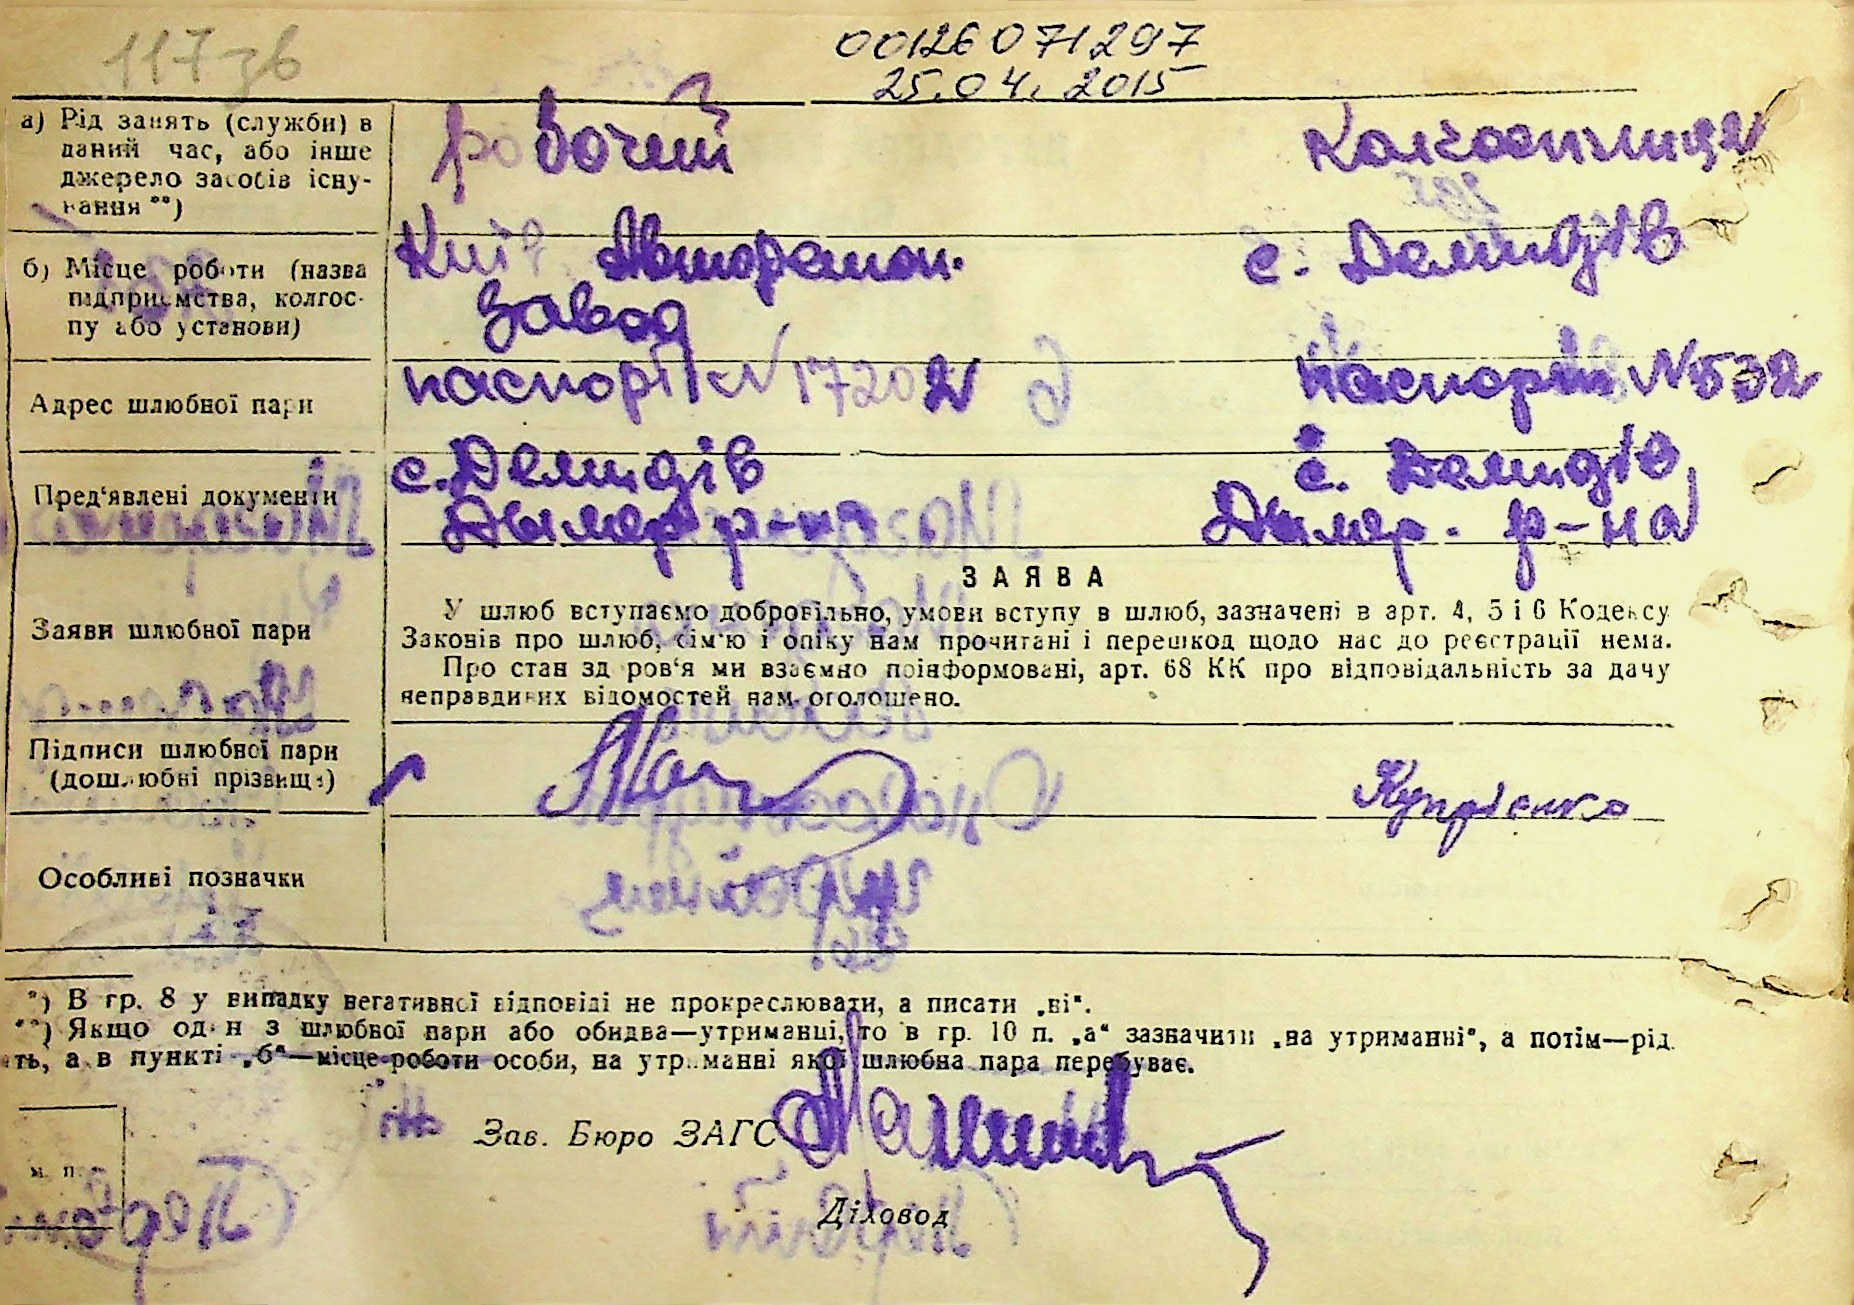 117зв
00126071297
25.04.2015
а) Рід занять (служби) в даний час, або інше джерело засобів існування **)
робочий
колгоспниця
б) Місце роботи (назва підприємства, колгоспу або установи)
Київ Авторемон.
завод
с. Демидів
Адрес шлюбної пари
паспорт № 17202
паспорт № 532
Пред'явлені документи
с. Демидів
Дымер р-на
с. Демидів
Дымер. р-на
Заяви шлюбної пари
ЗАЯВА
У шлюб вступаємо добровільно, умови вступу в шлюб, зазначені в арт. 4, 5 і 6 Кодексу
Законів про шлюб, сім'ю і опіку нам прочитані і перешкод щодо нас до реєстрації нема.
Про стан здоров'я ми взаємно поінформовані, арт. 68 КК про відповідальність за дачу
неправдивих відомостей нам оголошено.
Підписи шлюбної пари
(дошлюбні прізвища)
Купрієнко
Особливі позначки
*) В гр. 8 у випадку негативної відповіді не прокреслювати, а писати „ні“.
**) Якщо один з шлюбної пари або обидва—утриманці, то в гр. 10 п. „а“ зазначити „на утриманні“, а потім—рід
ть, а в пункті „б“—місце роботи особи, на утриманні якої шлюбна пара перебуває.
Зав. Бюро ЗАГС
м. п.
Діловод